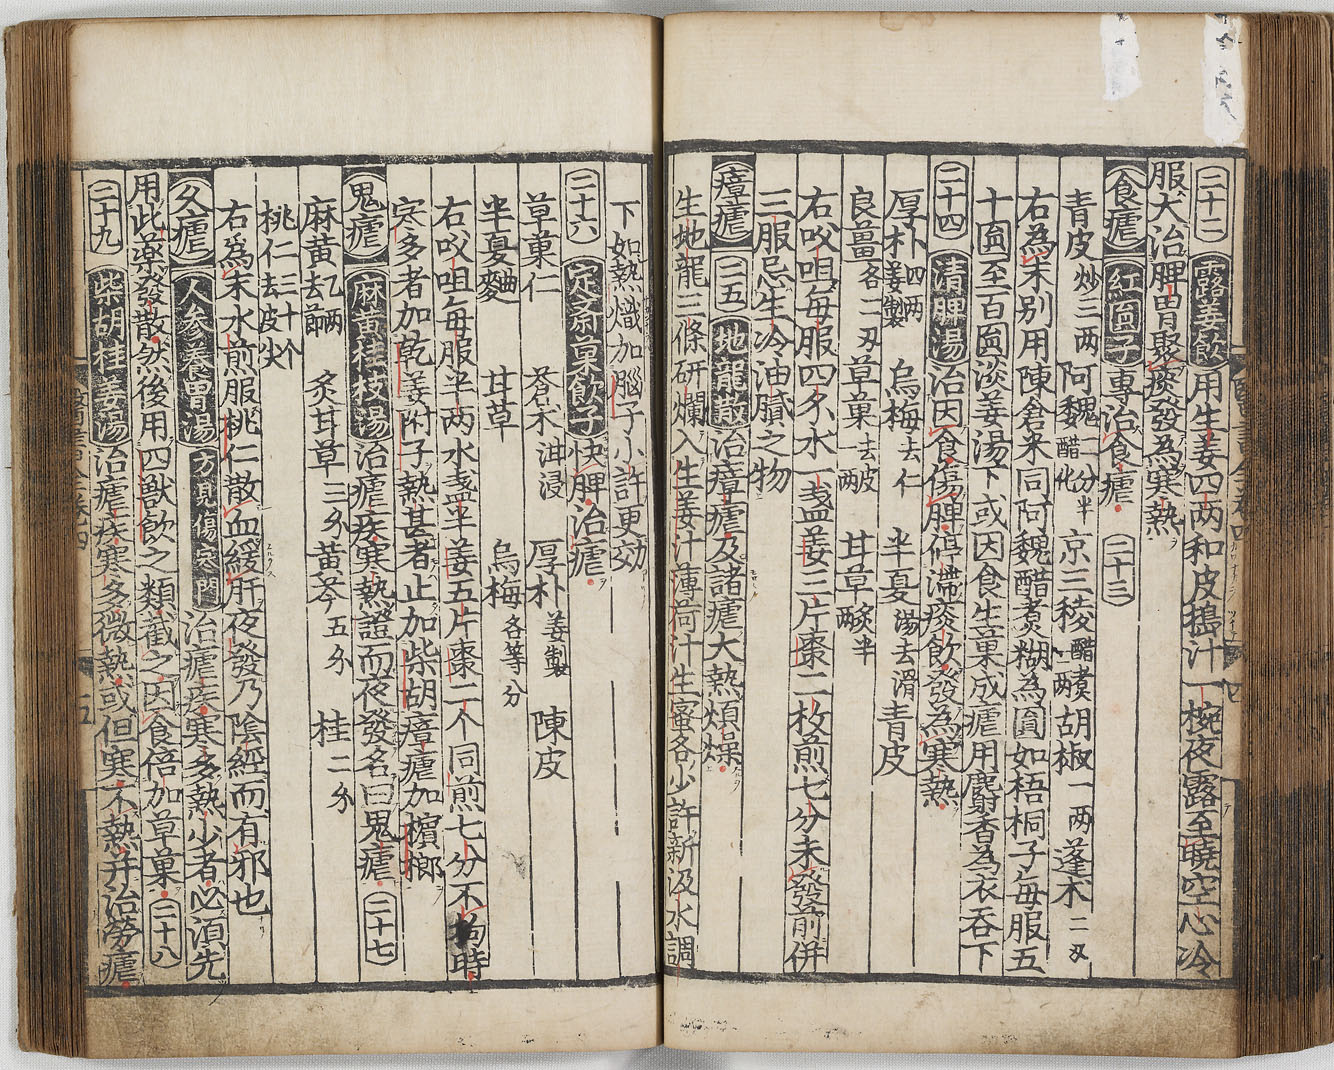 二十二 露姜飲 用生姜四两和皮搗汁一椀夜露至曉空心冷
服大治脾胃聚痰發為寒熱
食瘧 紅圓子 專治食瘧 二十三
青皮炒三两 阿魏一分半醋化 京三稜一两醋煮 胡椒一两 蓬朮二两
右為末别用陳倉米同阿魏醋煮糊為圓如梧桐子毎服五
十圓至百圓淡姜湯下或因食生菓成瘧用麝香為衣吞下
二十四 清脾湯 治因食傷脾停滯痰飲發為寒熱
厚朴四两姜製 烏梅去仁 半夏湯去滑 青皮
良薑各二两 草菓去皮两 甘草炙半两
右㕮咀毎服四分水一盞姜三片棗二枚煎七分未發前併
三服忌生冷油膩之物
瘴瘧 二五 地龍散 治瘴瘧及諸瘧大熱煩燥
生地龍三條研爛入生姜汁薄荷汁生蜜各少許新汲水調
下如熱熾加腦子小許更効
二十六 定斎菓飲子 快脾治瘧
草菓仁 蒼朮泔浸 厚朴姜製 陳皮
半夏麯 甘草 烏梅各等分
右㕮咀毎服半两水盞半姜五片棗二个同煎七分不拘時
寒多者加乾姜附子熱甚者止加柴胡瘴瘧加檳榔
鬼瘧 麻黄桂枝湯 治瘧疾寒熱證而夜發名曰鬼瘧 二十七
麻黄去節一两 炙甘草三分 黄芩五分 桂二分
桃仁三十个去皮尖
右爲末水煎服桃仁散血緩肝夜發乃陰經而有邪也
久瘧 人参養胃湯 方見傷寒門 治瘧疾寒多熱少者必須先
用此藥發散然後用四獸飲之類截之因食倍加草菓 二十八
二十九 柴胡桂姜湯 治瘧疾寒多微熱或但寒不熱并治勞瘧